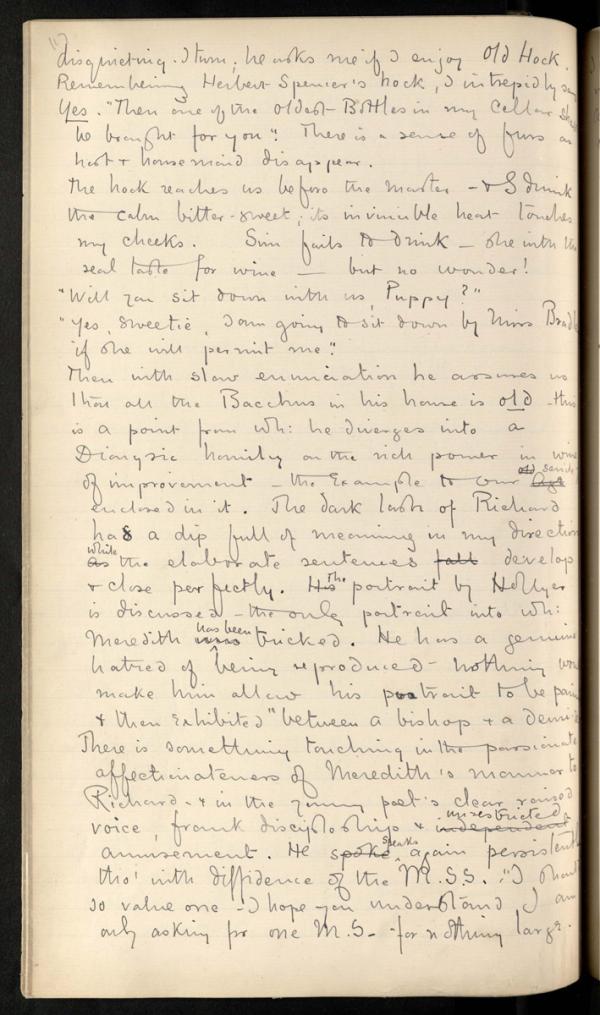 disquieting. I turn; he asks me if I enjoy Old Hock.
Remembering Herbert Spencer's hock, I intrepidly say
Yes. "Then one of the oldest Bottles in my Cellar shall
be brought for you". There is a sense of furs as
host & housemaid disappear.
The hock reaches us before the master - & I drink
the calm bitter-sweet; its invincible heat touches
my cheeks. Sim fails to drink - she with the
real taste for wine - but no wonder!
"Will you sit down with us, Puppy?"
"Yes, Sweetie, I am going to sit down by Miss Bradley
if she will permit me".
Then with slow enunciation he assures us
that all the Bacchus in his house is old - this
is a point from wh: he diverges into a
Dionysic homily on the rich power in wine
of improvement - the Example to our old
Age
enclosed in it. The dark lash of Richard
has a dip full of meaning in my direction
while
as the elaborate sentences fall develop
& close perfectly. His the portrait by Hollyer
is discussed - the only portrait into wh:
Meredith was has been tricked. He has a genuine
hatred of being reproduced - nothing would
make him allow his portrait to be painted
& then Exhibited "between a bishop & a demi
There is something touching in the passionate
affectionateness of Meredith's manner to
Richard - & in the young poet's clear raised
voice, frank discipleship & independent unrestricted
amusement. He spoke speaks again persistently
tho' with diffidence of the M.S.S. "I should
so value one - I hope you understand I am
only asking for one M.S. - for nothing large.